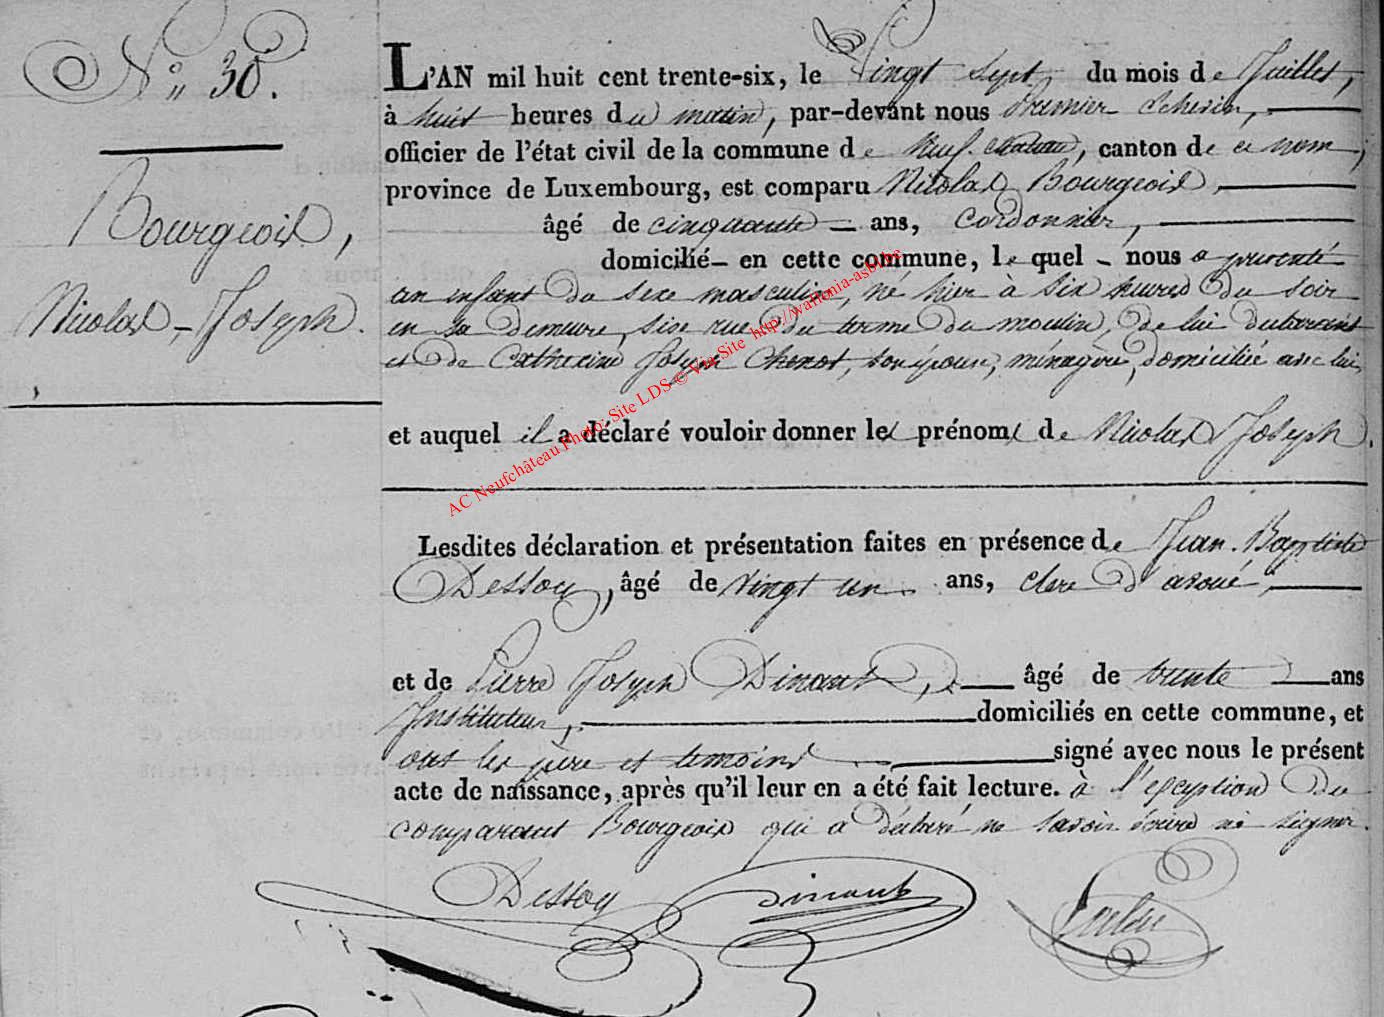 N° 30.
Bourgeois,
Nicolas-Joseph.
L'AN mil huit cent trente-six, le Vingt Sept, du mois de Juillet,
à huit heures du matin, par-devant nous Premier Echevin,
officier de l'état civil de la commune de Neufchateau, canton de ce nom,
province de Luxembourg, est comparu Nicolas Bourgeois,
âgé de cinquante ans, cordonnier,
domicilié en cette commune, lequel nous a presenté
un enfant du sexe masculin, né hier à six heures du soir
en sa demeure, sise rue du terme du moulin, de lui déclarant
et de Catherine Joseph Chenot, son épouse, ménagère, domiciliée avec lui,
et auquel il a déclaré vouloir donner les prénoms de Nicolas Joseph.
Lesdites déclaration et présentation faites en présence de Jean-Baptiste
Dessoy, âgé de vingt un ans, clerc d'avoué,
et de Pierre Joseph Dinant, âgé de trente ans
Instituteur, domiciliés en cette commune, et
ont les père et temoins signé avec nous le présent
acte de naissance, après qu'il leur en a été fait lecture. à l'exception du
comparant Bourgeois qui a déclaré ne savoir écrire ni signer.
Dessoy Dinant
AC Neufchâteau Photo: Site LDS © Via Site http://wallonia-asbl.be